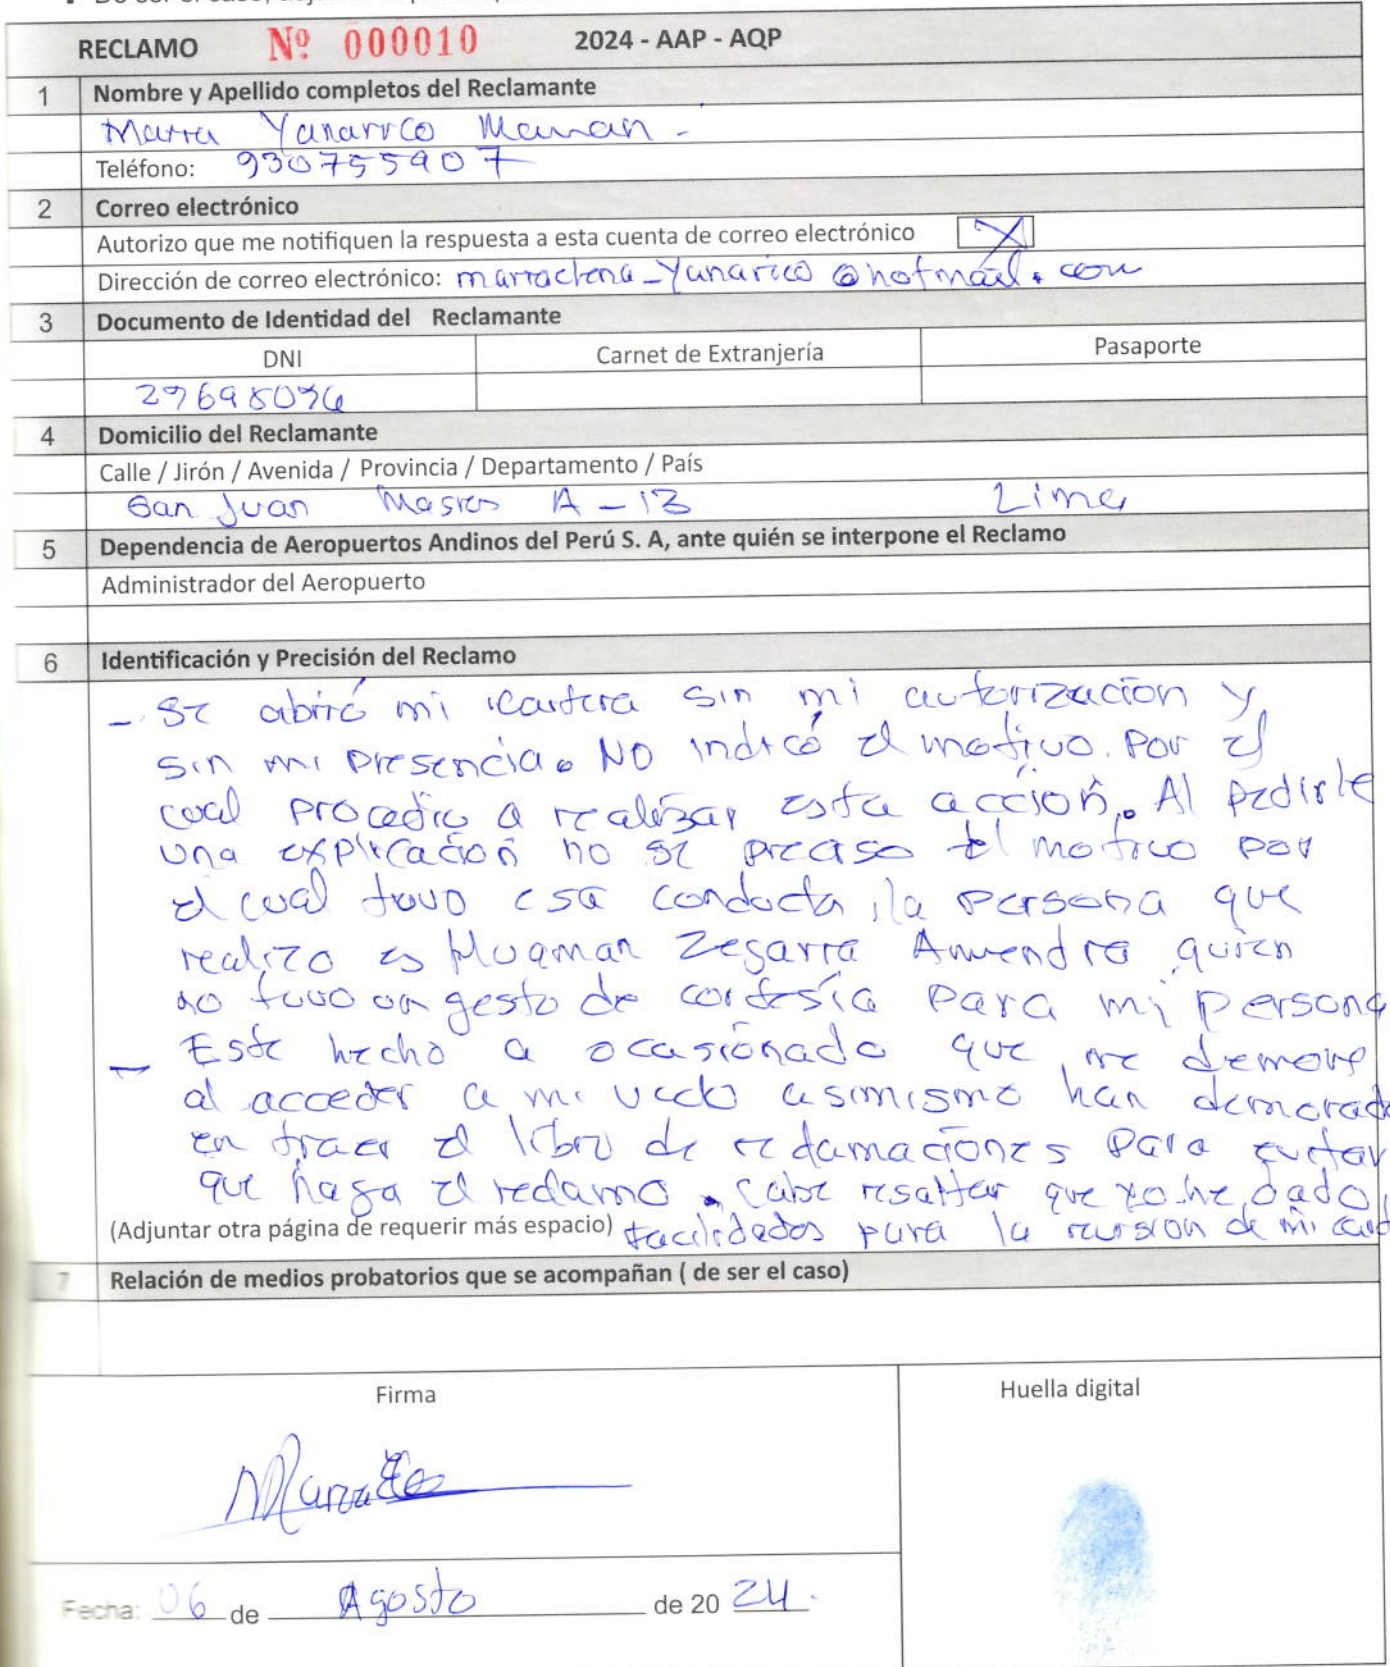 RECLAMO Nº 000010 2024 - AAP - AQP
1 Nombre y Apellido completos del Reclamante
Maria Yanarico Maman -
Teléfono: 930755907
2 Correo electrónico
Autorizo que me notifiquen la respuesta a esta cuenta de correo electrónico X
Dirección de correo electrónico: mariaelena_Yanarico @hotmail.com
3 Documento de Identidad del Reclamante
DNI Carnet de Extranjería Pasaporte
4 Domicilio del Reclamante
Calle / Jirón / Avenida / Provincia / Departamento / País
San Juan Masías A - 13 Lima
5 Dependencia de Aeropuertos Andinos del Perú S. A, ante quién se interpone el Reclamo
Administrador del Aeropuerto
6 Identificación y Precisión del Reclamo
- Se abrió mi cartera sin mi autorización y
sin mi presencia. No indicó el motivo. Por el
cual procedio a realizar esta acción. Al pedirle
una explicación no se preciso el motivo por
el cual tuvo esa conducta, la persona que
realizo es Huaman Zegarra quien
no tuvo un gesto de cortesía para mi persona
- Este hecho a ocasionado que me demore
al acceder a mi vuelo asimismo han demorado
en traer el libro de reclamaciones para evitar
que haga el reclamo. Cabe resaltar que yo he dado
(Adjuntar otra página de requerir más espacio) facilidades para la revision de mi
7 Relación de medios probatorios que se acompañan ( de ser el caso)
Firma Huella digital
Fecha: 06 de Agosto de 20 24.